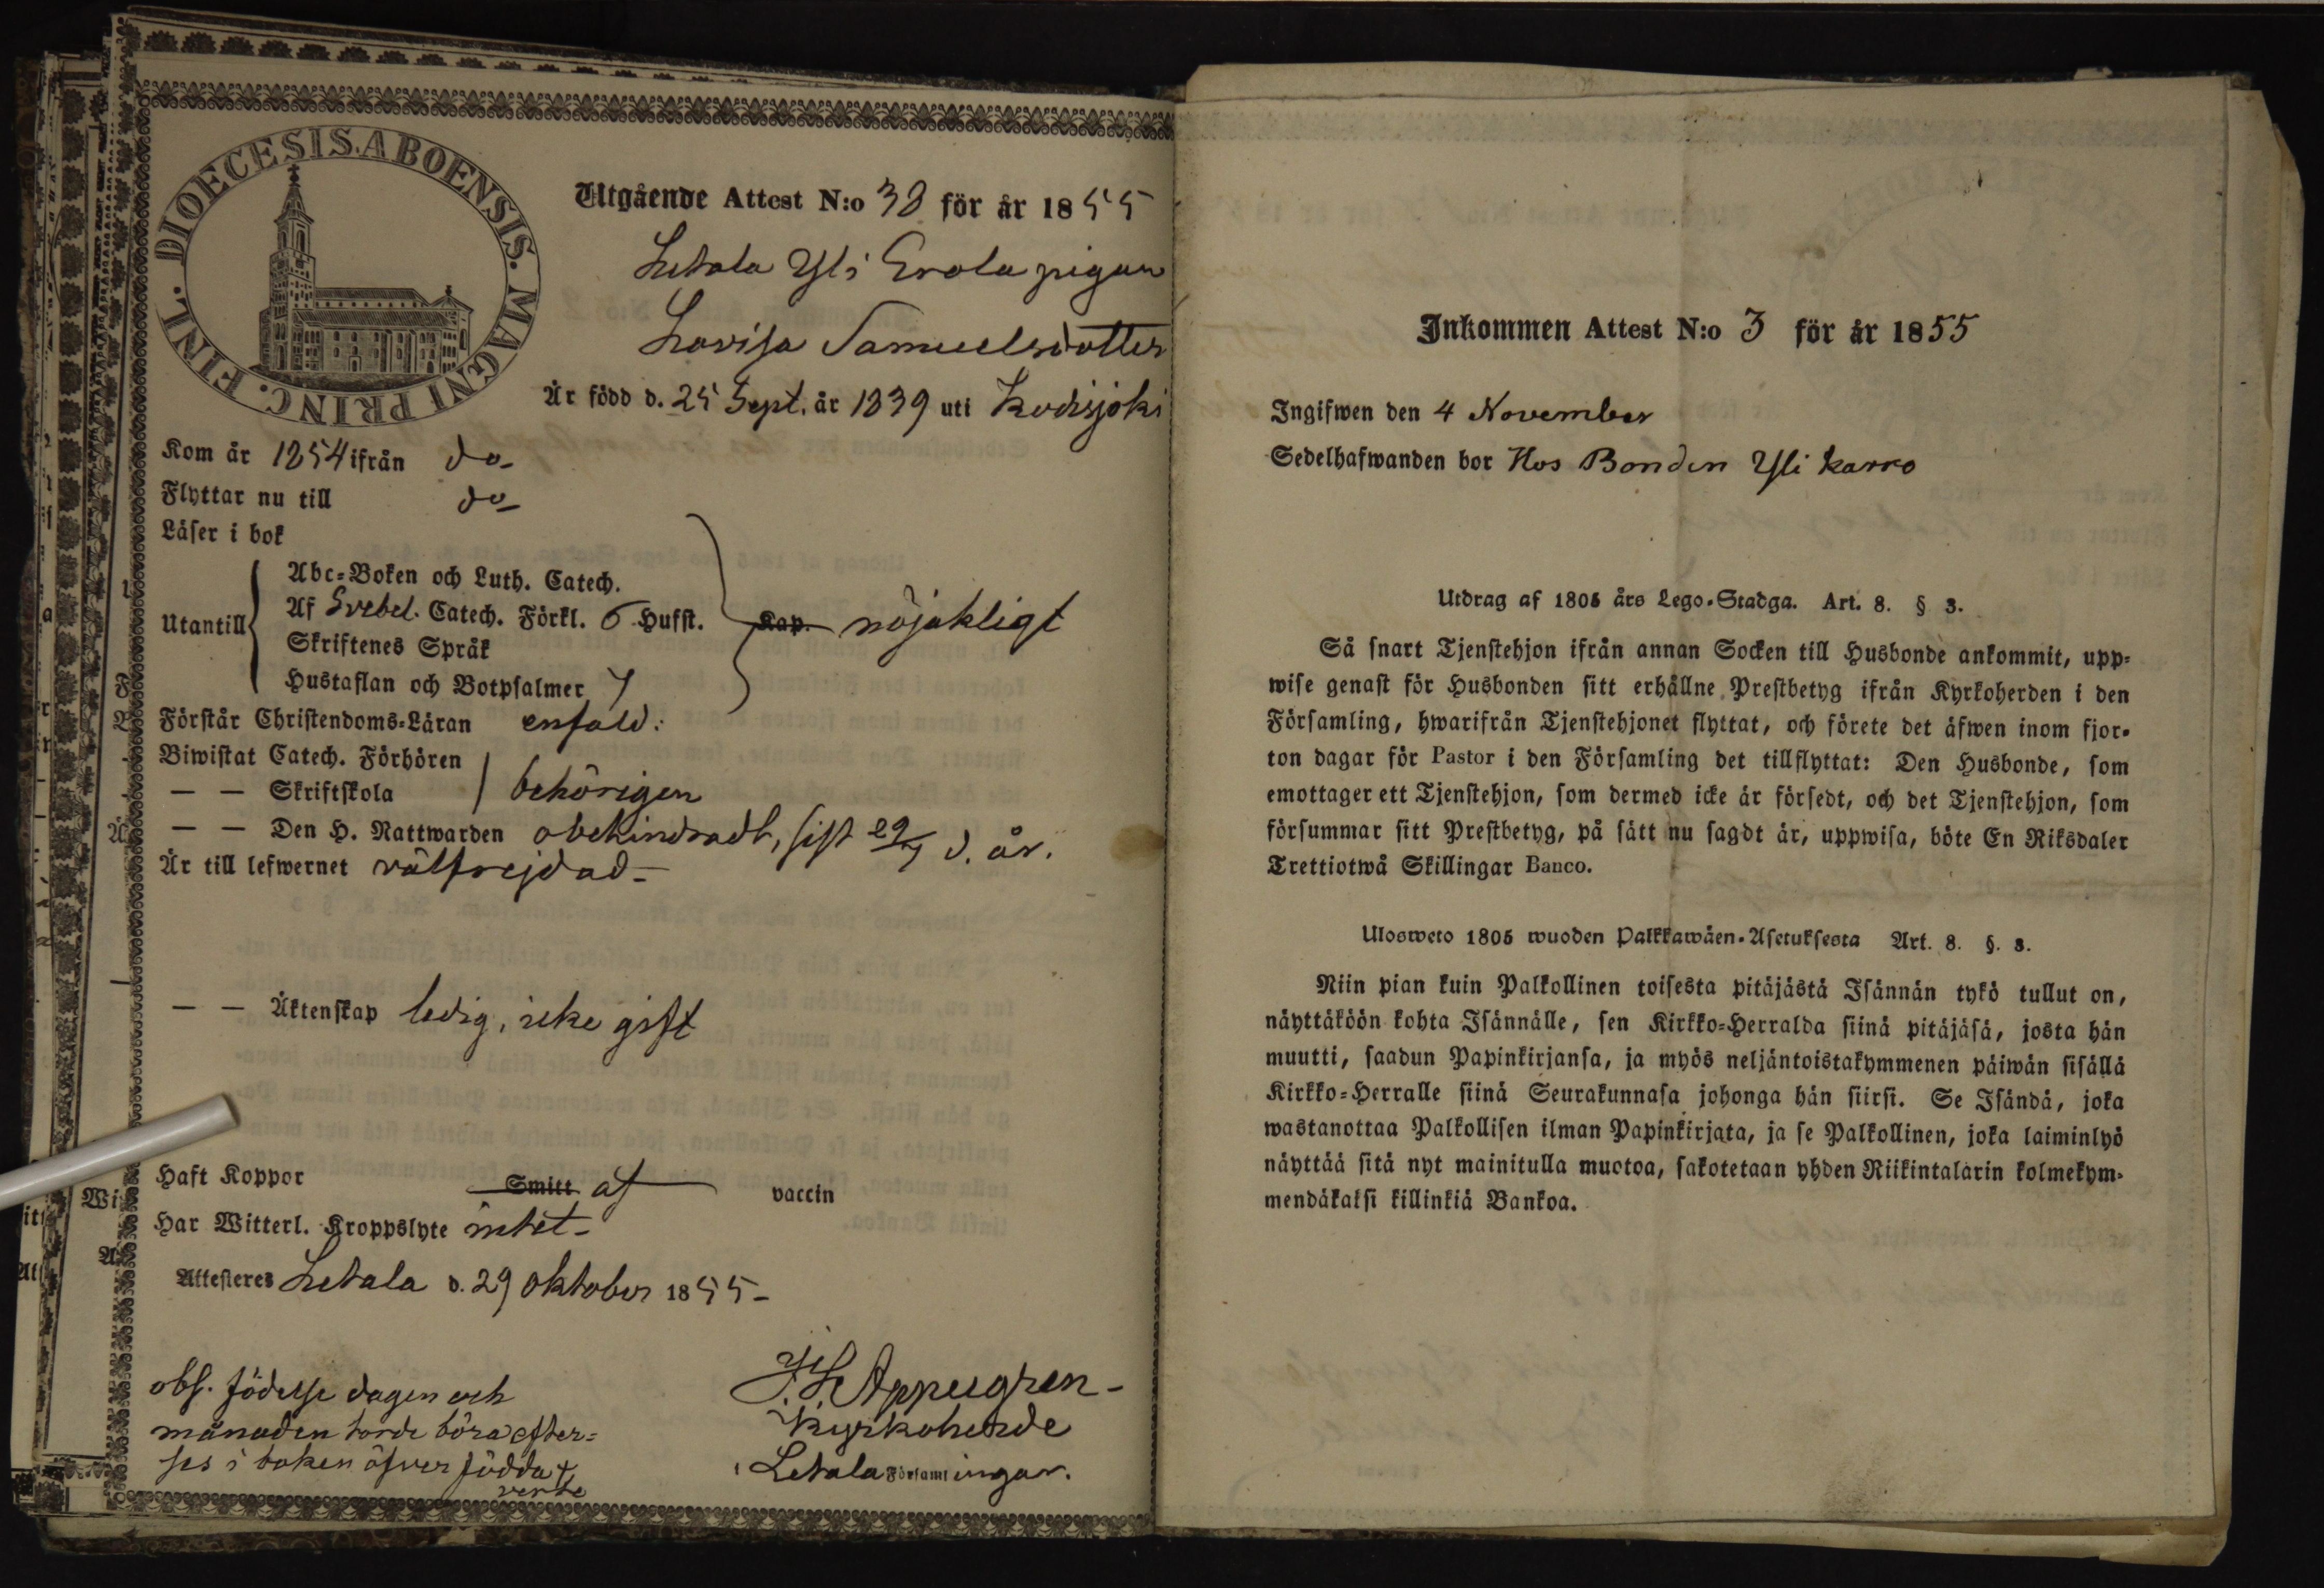 DIOECESIS.ABOENSIS. MAGNI PRINC. FINL.
Utgående Attest N:o 38 för år 1855
Letala Yli Erola pigan
Lovisa Samuelsdotter
Är född d. 25 Sept. år 1839 uti Kodisjoki
Kom år 1854 ifrån do_
Flyttar nu till do_
Läser i bok
Utantill
Abc-Boken och Luth. Catech.
Af Svebel. Catech. Förkl. 6 Hufst.
Skriftenes Språk
Hustaflan och Botpsalmer 7
Kap. nöjakligt
Förstår Christendoms-Läran enfald:
Biwistat Catech. Förhören
— — Skriftskola behörigen
— — Den H. Nattwarden obehindradt, sist 29/7 d. år.
Är till lefwernet välfrejdad_
— — Äktenskap ledig, icke gift
Haft Koppor Smitt af vaccin
Har Witterl. Kroppslyte intet_
Attesteres Letala d. 29 Oktober 1855_
obs. födelse dagen och
månaden torde böra efter=
ses i boken öfver födda
verte
Appelgren_
Kyrkoherde
i Letala Församlingar.
Inkommen Attest N:o 3 för år 1855
Ingifwen den 4 November
Sedelhafwanden bor Hos Bonden Yli Karro
Utdrag af 1805 års Lego-Stadga. Art. 8. § 3.
Så snart Tjenstehjon ifrån annan Socken till Husbonde ankommit, upp-
wise genast för Husbonden sitt erhållne Prestbetyg ifrån Kyrkoherden i den
Församling, hwarifrån Tjenstehjonet flyttat, och förete det äfwen inom fjor-
ton dagar för Pastor i den Församling det tillflyttat: Den Husbonde, som
emottager ett Tjenstehjon, som dermed icke är försedt, och det Tjenstehjon, som
försummar sitt Prestbetyg, på sätt nu sagdt är, uppwisa, böte En Riksdaler
Trettiotwå Skillingar Banco.
Ulosweto 1805 wuoden Palkkawäen-Asetuksesta Art. 8. §. 3.
Niin pian kuin Palkollinen toisesta pitäjästä Isännän tykö tullut on,
näyttäköön kohta Isännälle, sen Kirkko-Herralda siinä pitäjäsä, josta hän
muutti, saadun Papinkirjansa, ja myös neljäntoistakymmenen päiwän sisällä
Kirkko-Herralle siinä Seurakunnasa johonga hän siirsi. Se Isändä, joka
wastanottaa Palkollisen ilman Papinkirjata, ja se Palkollinen, joka laiminlyö
näyttää sitä nyt mainitulla muotoa, sakotetaan yhden Riikintalarin kolmekym-
mendäkaksi killinkiä Bankoa.